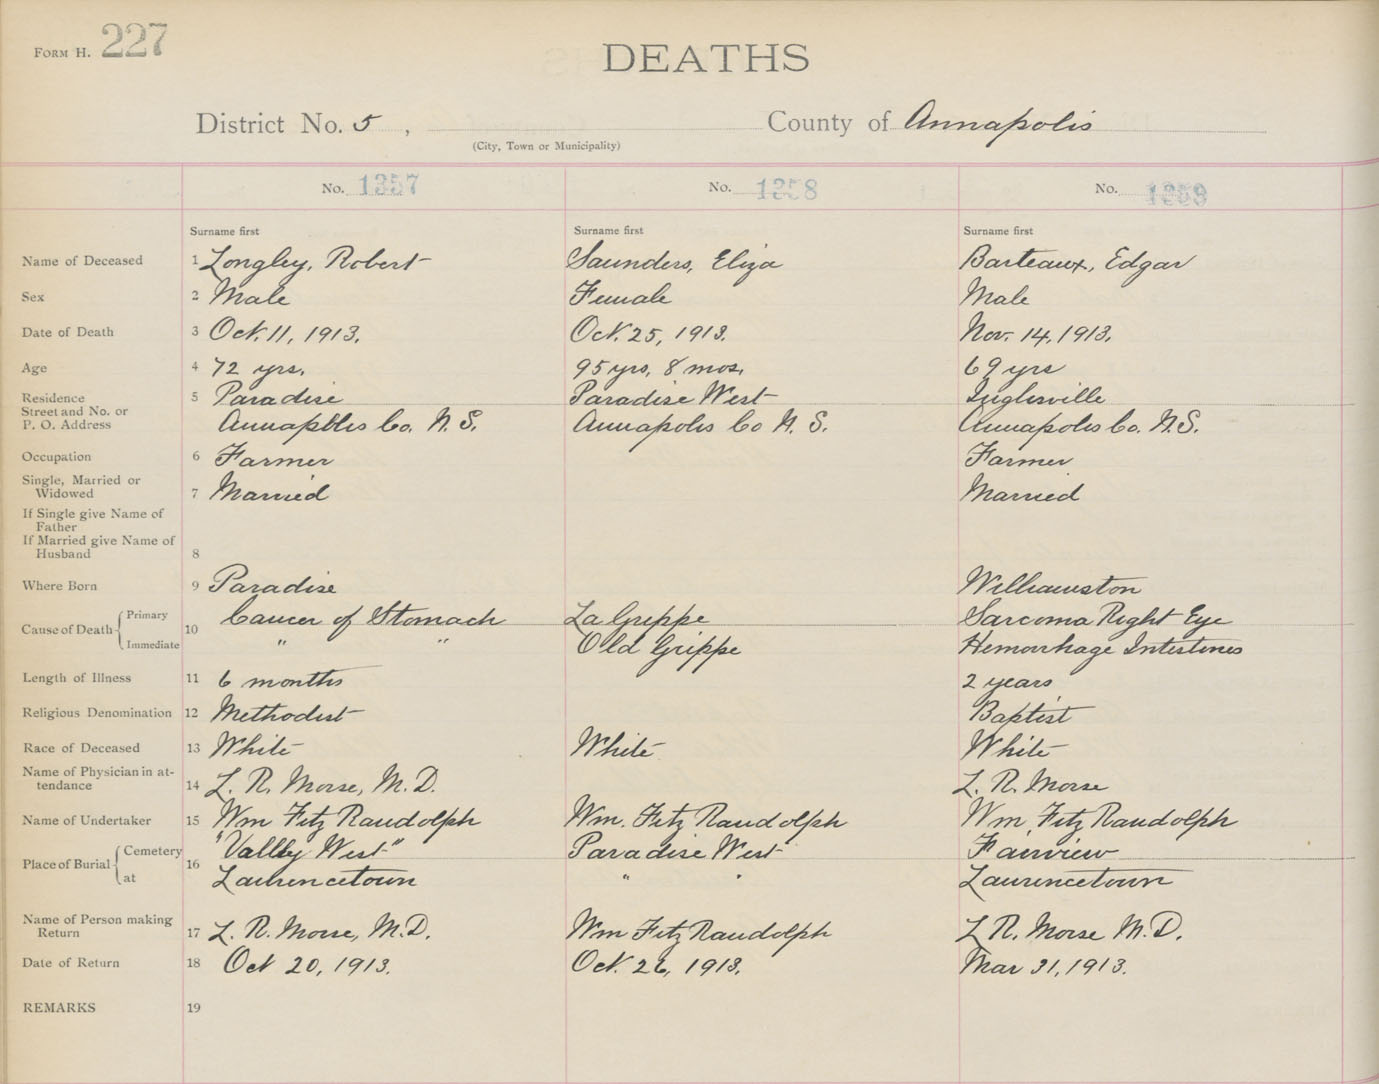 FORM H. 227
DEATHS
District No. 5, County of Annapolis
(City, Town or Municipality)
No. 1357 No. 1358 No. 1359
Surname first Surname first Surname first
Name of Deceased 1 Longley, Robert Saunders, Eliza Barteaux, Edgar
Sex 2 Male Female Male
Date of Death 3 Oct. 11, 1913. Oct. 25, 1913. Nov. 14, 1913.
Age 4 72 yrs. 95 yrs, 8 mos. 69 yrs
Residence 5 Paradise Paradise West Inglisville
Street and No. or
P. O. Address Annapolis Co. N. S. Annapolis Co N. S. Annapolis Co. N.S.
Occupation 6 Farmer Farmer
Single, Married or
Widowed 7 Married Married
If Single give Name of
Father
If Married give Name of
Husband 8
Where Born 9 Paradise Williamston
Cause of Death 10 Primary Cancer of Stomach La Grippe Sarcoma Right Eye
Immediate " " Old Grippe Hemorrhage Intestines
Length of Illness 11 6 months 2 years
Religious Denomination 12 Methodist Baptist
Race of Deceased 13 White White White
Name of Physician in at-
tendance 14 L. R. Morse, M. D. L. R. Morse
Name of Undertaker 15 Wm Fitz Randolph Wm. Fitz Randolph Wm. Fitz Randolph
Place of Burial 16 Cemetery "Valley West" Paradise West Fairview
at Laurencetown " " Laurencetown
Name of Person making
Return 17 L. R. Morse, M.D. Wm Fitz Randolph L. R. Morse M. D.
Date of Return 18 Oct 20, 1913. Oct. 26, 1913. Mar 31, 1913.
REMARKS 19